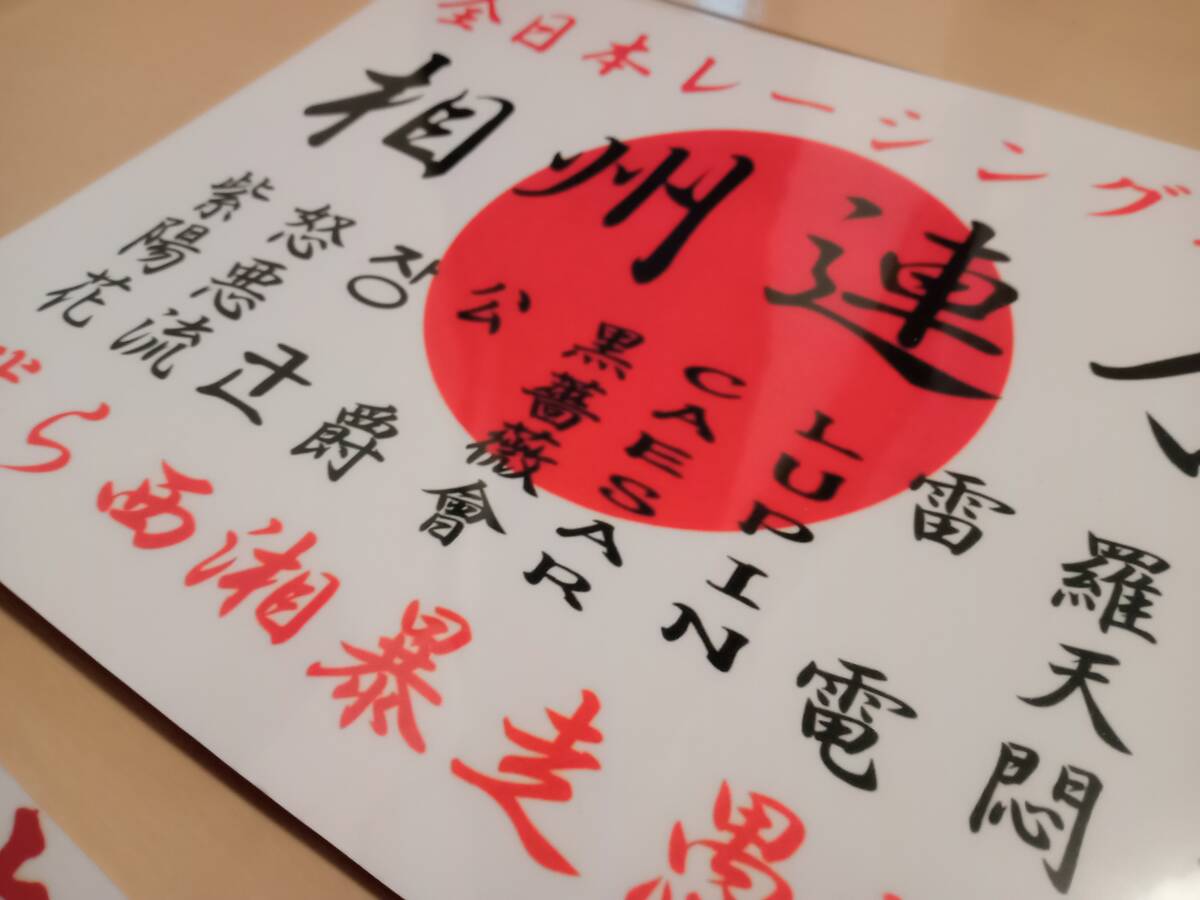 全日本レーシング
相州連
羅天悶
雷電
LUPIN
CAESAR
黒薔薇會
公爵
장군
怒悪流
紫陽花
ら西湘暴走愚